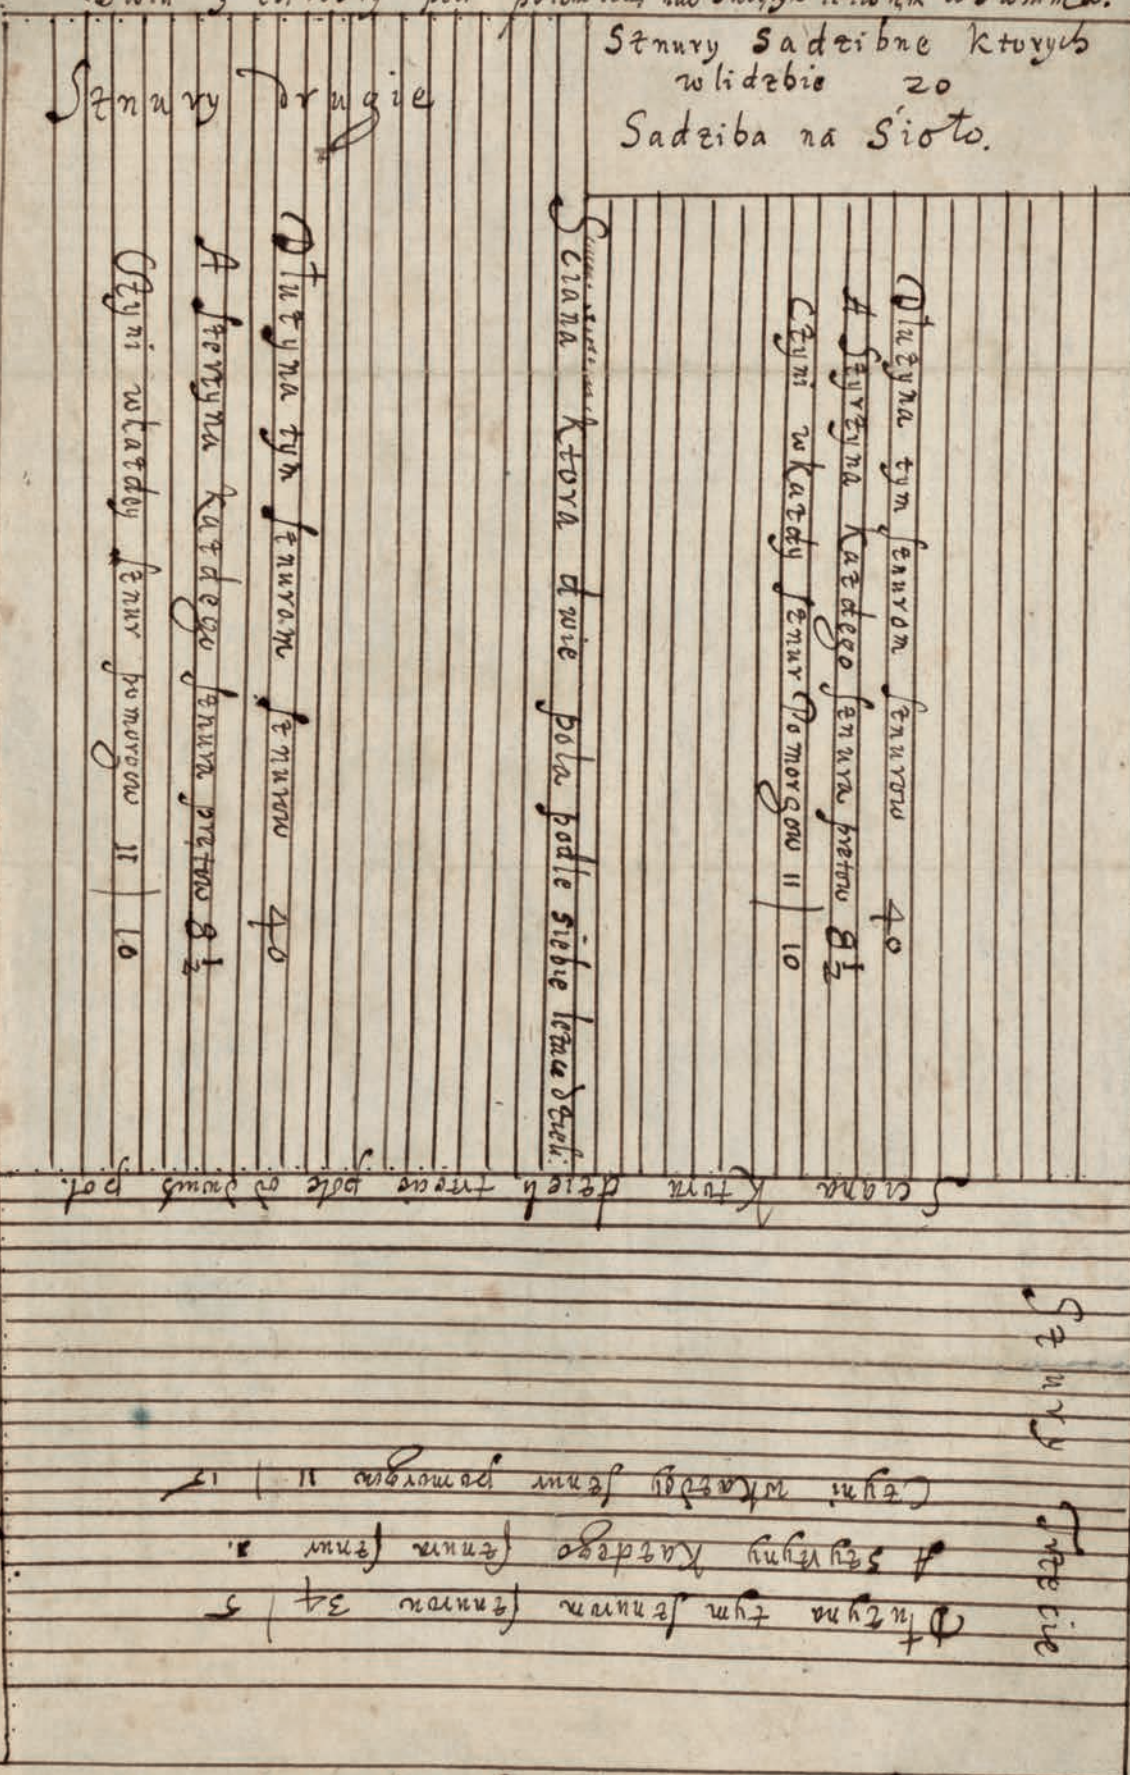 Sznury Sadzibne Ktorych
w lidzbie 20
Sadziba na Sioło.
Sznury Drugie
Dłużyna tym sznurom sznurow 40
A szyrzyna Kazdego sznura prętow 8½
Czyni w Kazdy sznur Pomorgow 11 | 10
Sciana Ktora dwie pola podle siebie lezące dzieli.
Dłużyna tym sznurom sznurow 40
A szerzyna Kazdego sznura prętow 8½
Czyni w kazdey sznur pomorgow 11 | 10
Sciana Ktora dzieli trzecie pole od dwuch pol.
Sznury Trzecie
Dłużyna tym sznurom sznurow 34 | 5
A szyrzyny Kazdego sznura sznur 1.
Czyni w Kazdy sznur pomorgow 11 | 15